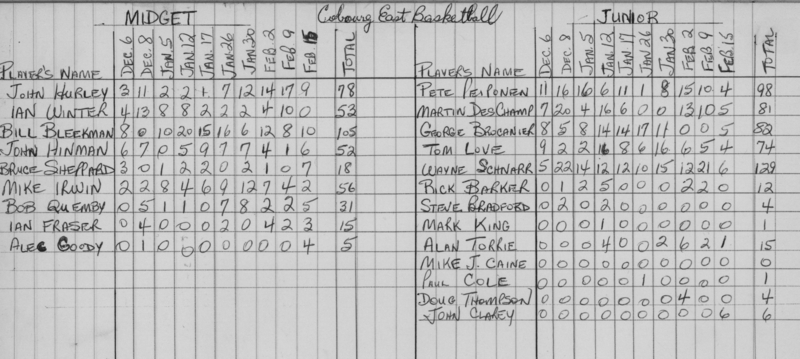 MIDGET Cobourg East Basketball JUNIOR
PLAYER'S NAME DEC. 6 DEC. 8 JAN. 5 JAN. 12 JAN. 17 JAN. 26 JAN. 30 FEB. 2 FEB 9 FEB. 15 TOTAL PLAYER'S NAME DEC. 6 DEC. 8 JAN. 5 JAN. 12 JAN 17 JAN 26 JAN. 30 FEB. 2 FEB. 9 FEB. 15 TOTAL
JOHN HURLEY 3 11 2 2 1 7 12 14 17 9 78 PETE PEIPONEN 11 16 16 6 11 1 8 15 10 4 98
IAN WINTER 4 13 8 8 2 2 2 4 10 0 53 MARTIN DESCHAMP 7 20 4 16 6 0 0 13 10 5 81
BILL BLEEKMAN 8 0 10 20 15 16 6 12 8 10 105 GEORGE BROCANIER 8 5 8 14 14 17 11 0 0 5 82
JOHN HINMAN 6 7 0 5 9 7 7 4 1 6 52 TOM LOVE 9 2 2 16 8 6 16 6 5 4 74
BRUCE SHEPPARD 3 0 1 2 2 0 2 1 0 7 18 WAYNE SCHNARR 5 22 14 12 12 10 15 12 21 6 129
MIKE IRWIN 2 2 8 4 6 9 12 7 4 2 56 RICK BARKER 0 1 2 5 0 0 0 2 2 0 12
BOB QUEMBY 0 5 1 1 0 7 8 2 2 5 31 STEVE BRADFORD 0 2 0 2 0 0 0 0 0 0 4
IAN FRASER 0 4 0 0 0 2 0 4 2 3 15 MARK KING 0 0 0 1 0 0 0 0 0 0 1
ALEC GOODY 0 1 0 0 0 0 0 0 0 4 5 ALAN TORRIE 0 0 0 4 0 0 2 6 2 1 15
MIKE J. CAINE 0 0 0 0 0 0 0 0 0 0 0
PAUL COLE 0 0 0 0 0 1 0 0 0 0 1
DOUG THOMPSON 0 0 0 0 0 0 0 4 0 0 4
JOHN CLAREY 0 0 0 0 0 0 0 0 0 6 6